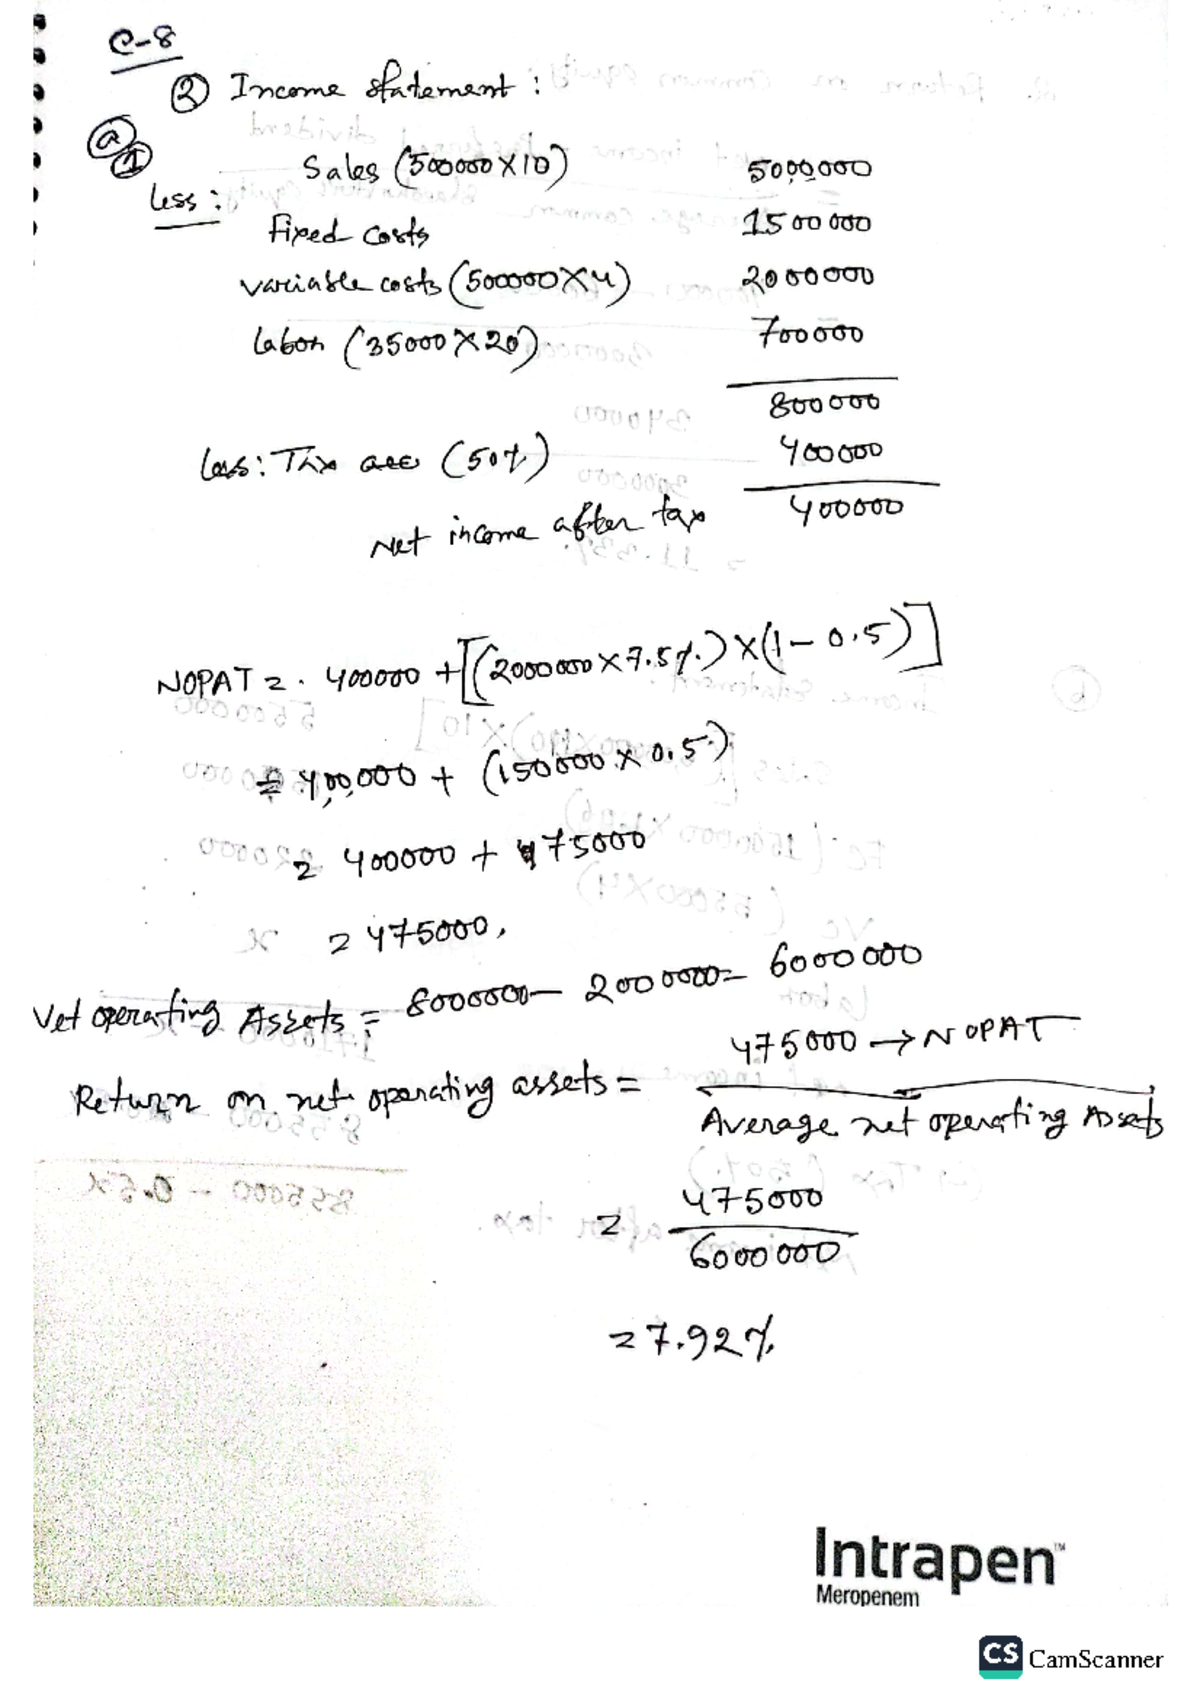 C-8
② Income statement :
ⓐ
①
Sales (500000 X 10) 5000000
Less :
Fixed costs 1500000
variable costs (500000 X 4) 2000000
Labor (35000 X 20) 700000
800000
Less: Tax (50%) 400000
Net income after tax 400000
NOPAT = 400000 + [(2000000 X 7.5%) X (1 - 0.5)]
= 400,000 + (150000 X 0.5)
= 400000 + 75000
= 475000,
Net operating Assets = 8000000 - 2000000 = 6000000
Return on net operating assets = 475000 → NOPAT
Average net operating Assets
= 475000
6000000
= 7.92%
Intrapen™
Meropenem
CS CamScanner